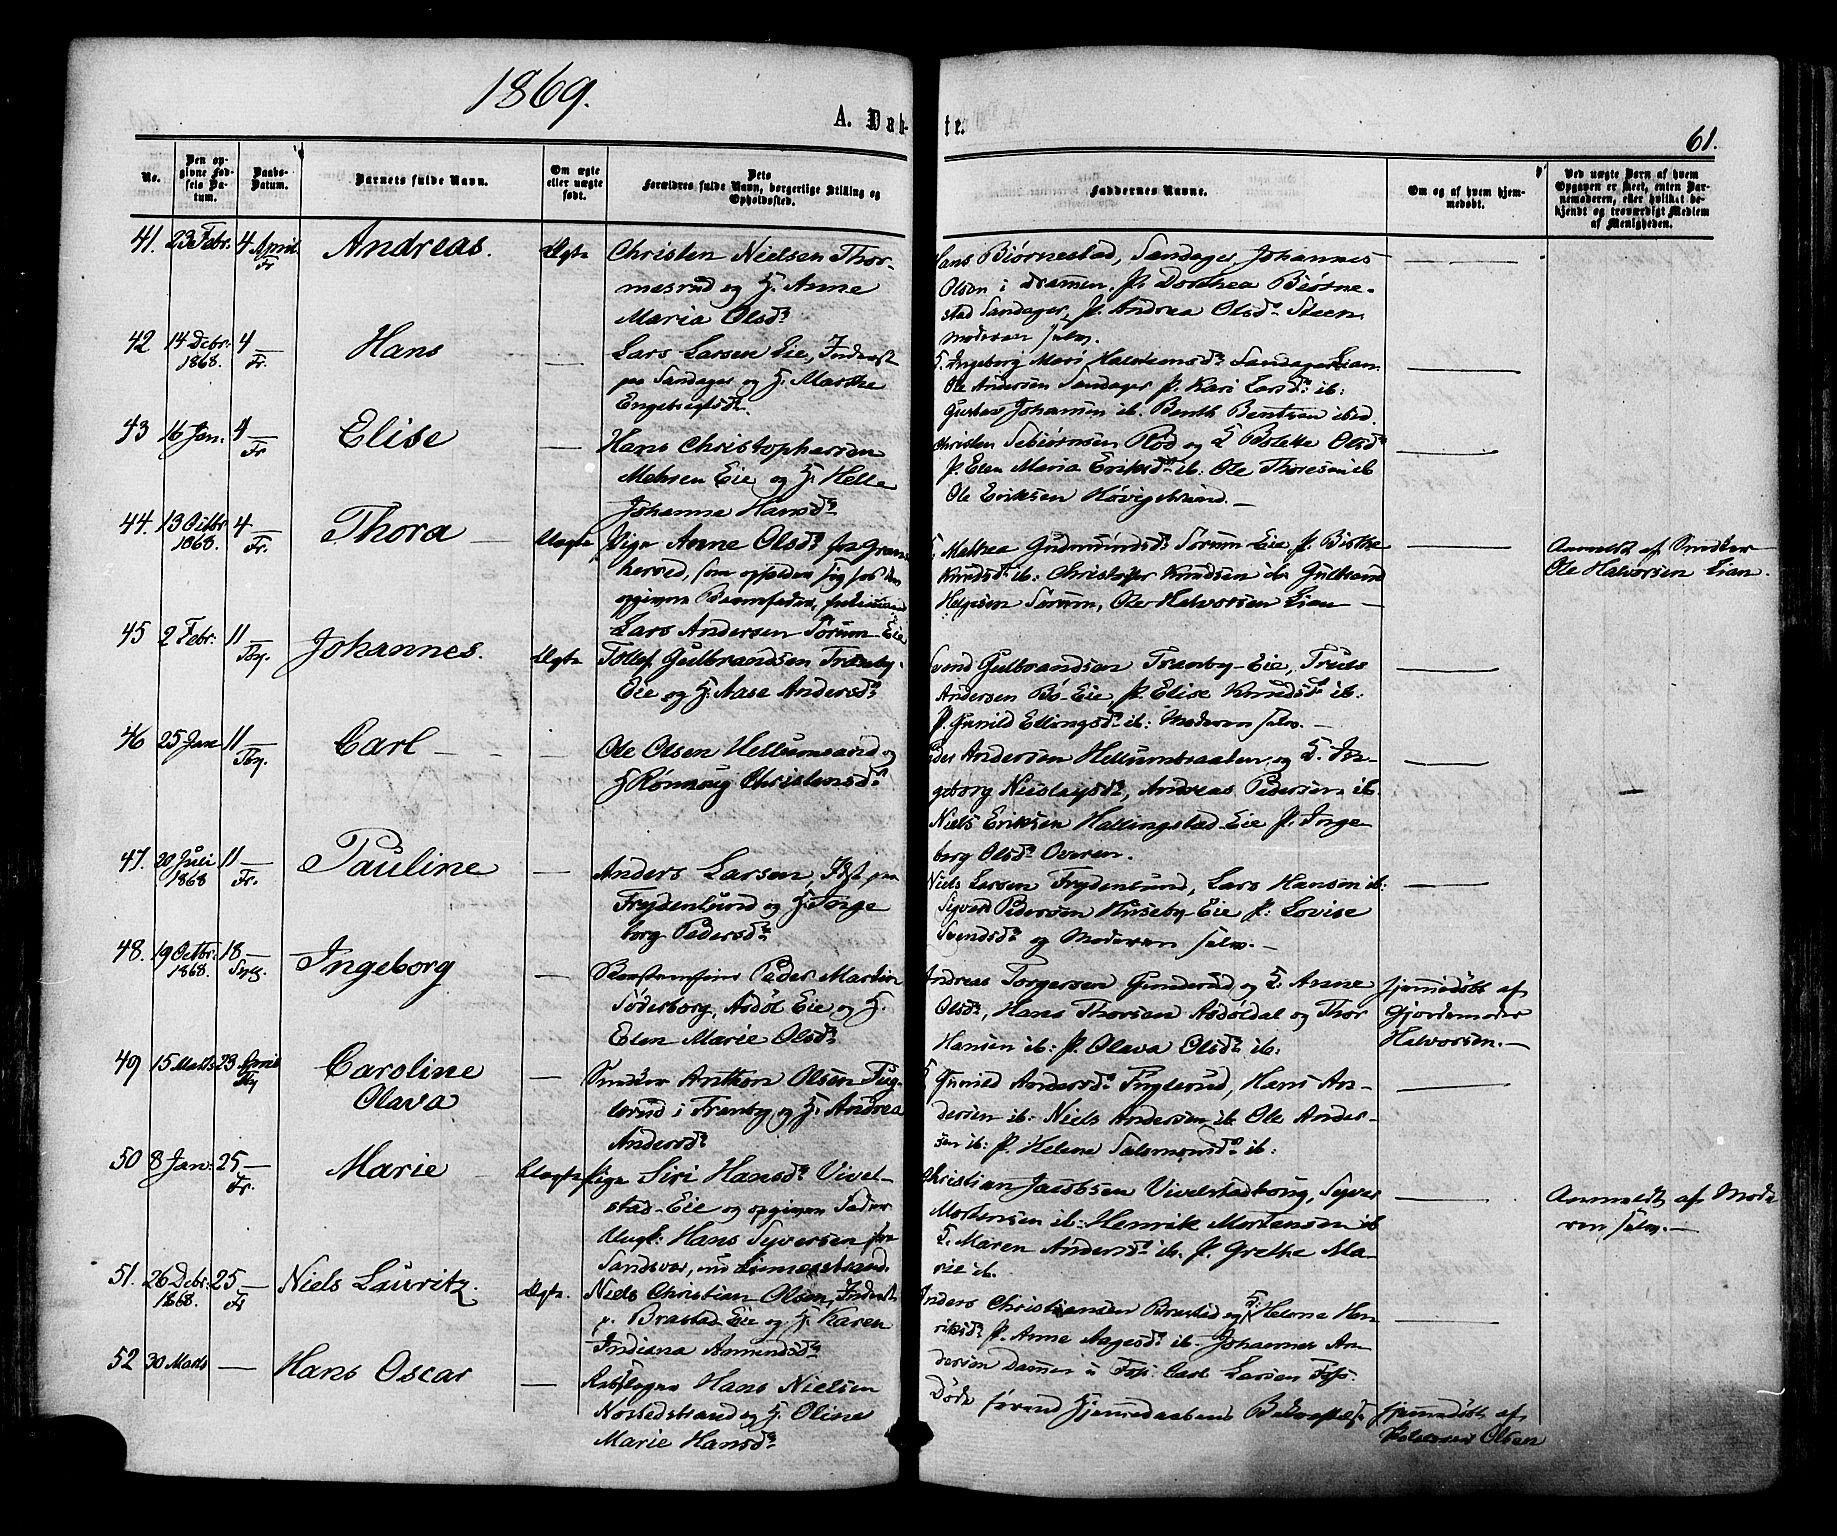 1869.
A. Døb-
te.
61.
No.
Den op-
givne Fød-
sels Da-
tum.
Daabs-
Datum.
Barnets fulde Navn.
Om ægte
eller uægte
født.
Dets
Forældres fulde Navn, borgerlige Stilling og
Opholdssted.
Faddernes Navne.
Om og af hvem hjem-
medøbt.
Ved uægte Børn af hvem
Opgaven er skeet, enten Bar-
nemoderen, eller hvilket be-
kjendt og troværdigt Medlem
af Menigheden.
41. 23 Febr. 4 April Fr Andreas. Ægte Christen Nielsen Thor-
masrud og H. Anne
Maria Olsdr
Hans Biørnestad, Sandager, Johannes
Olsen i Drammen, P. Dorthea Biørne-
stad Sandager, P. Andrea Olsdr Steen
Moderen selv.
42 14 Debr. 1868. 4 Fr. Hans Lars Larsen Eie, Inderst
paa Sandager og H. Marthe
Engebregtsdr
Ingeborg Mari Halvorsdr Sandager Lian
Ole Andersen Sandager P. Kari Larsdr ib:
Gustav Johansen ib. Benth Bentsen ibid.
43 16 Jan. 4 Fr Elise Hans Christophersen
Mehren Eie og H. Helle
Johanne Hansdr
Christen Sebiørnsen Rød og H. Bolette Olsdr
P. Elen Maria Eriksdr ib: Ole Thoresen ib
Ole Eriksen Høvigstrand.
44. 13 Octbr 1868. 4 Fr. Thora Uægte Pige Anne Olsdr fra Grans-
herred, som opholder sig hos den
opgivne Barnefader,
Lars Andersen Sørum Eie
Mathea Gudmundsdr Sørum Eie, P. Birthe
Knudsdr ib: Christopher Knudsen ib. Gulbrand
Helgesen Sørum, Ole Halvorsen Lian
Anmeldt af Smeder
Ole Halvorsen Lian.
45 2 Febr. 11 Tby. Johannes. Ægte Tollef Gulbrandsen Tranby-
Eie og H. Aase Andersdr
Svend Gulbrandsen Tranby-Eie, Truls
Andersen Bø-Eie, P. Elise Knudsdr ib.
P. Gunild Ellingsdr ib: Moderen selv.
46 25 Jan 11 Tby. Carl Ole Olsen Hellumsvind og
H Rønnoug Christensdr
Peder Andersen Hellumbraaten og H. In-
geborg Nielsdr, Andreas Pedersen ib.
Niels Eriksen Hallingstad Eie P. Inge
borg Olsdr Overen.
47. 20 Juli 1868 11 Fr. Pauline Anders Larsen, Idst paa
Frydenlund og H. Inge
borg Pedersdr
Niels Larsen Frydenlund, Lars Hansen ib:
Syver Pedersen Huseby Eie P: Lovise
Svendsdr og Moderen selv.
48. 19 Octbr. 1868. 18 Ingeborg Peder Martin
Söderborg, Asdøl Eie, og H.
Elen Marie Olsdr
Andreas Torgersen Gunderud og H. Anne
Olsdr, Hans Thorsen Asdøldal og Thor
Hansen ib: P. Olava Olsdr ib.
Hjemmedøbt af
Gjordemoder
Halvorsen.
49 15 Marts 23 April Tby Caroline
Olava
Smeder Anthon Olsen Fug-
lerud i Tranby og H. Andrea
Andersdr
Gunild Andersdr Fuglerud, Hans An-
dersen ib: Niels Andersen ib. Ole Ander-
sen ib: P. Helene Salomonsdr ib:
50 8 Jan: 25 Fr. Marie Uægte Pige Siri Hansdr Vivel-
stad-Eie og opgiven Fader
Ungk: Hans Syversen fra
Sandsvær, nu Limmestrand.
Christian Jacobsen Vivelstadhoug, Syver
Mortensen ib: Henrik Mortensen ib
H. Maren Andersdr ib. P. Grethe Ma-
rie ib.
Anmeldt af Mode
ren selv.
51. 26 Debr. 1868. 25 Fr Niels Lauritz. Ægte Niels Christian Olsen, Inderst
p. Brastad-Eie og H. Karen
Indiana Amundsdr
Anders Christiansen Brastad og H: Helene Hen
riksdr P. Anne Aagesdr ib. Johannes An
dersen Dammen u. Foss. Carl Larsen Foss.
52 30 Marts Hans Oscar Hans Nielsen
Næssedstrand og H. Oline
Marie Hansdr
Døde forend Hjemmedaabens Bekræftelse
Hjemmedøbt af
Olsen